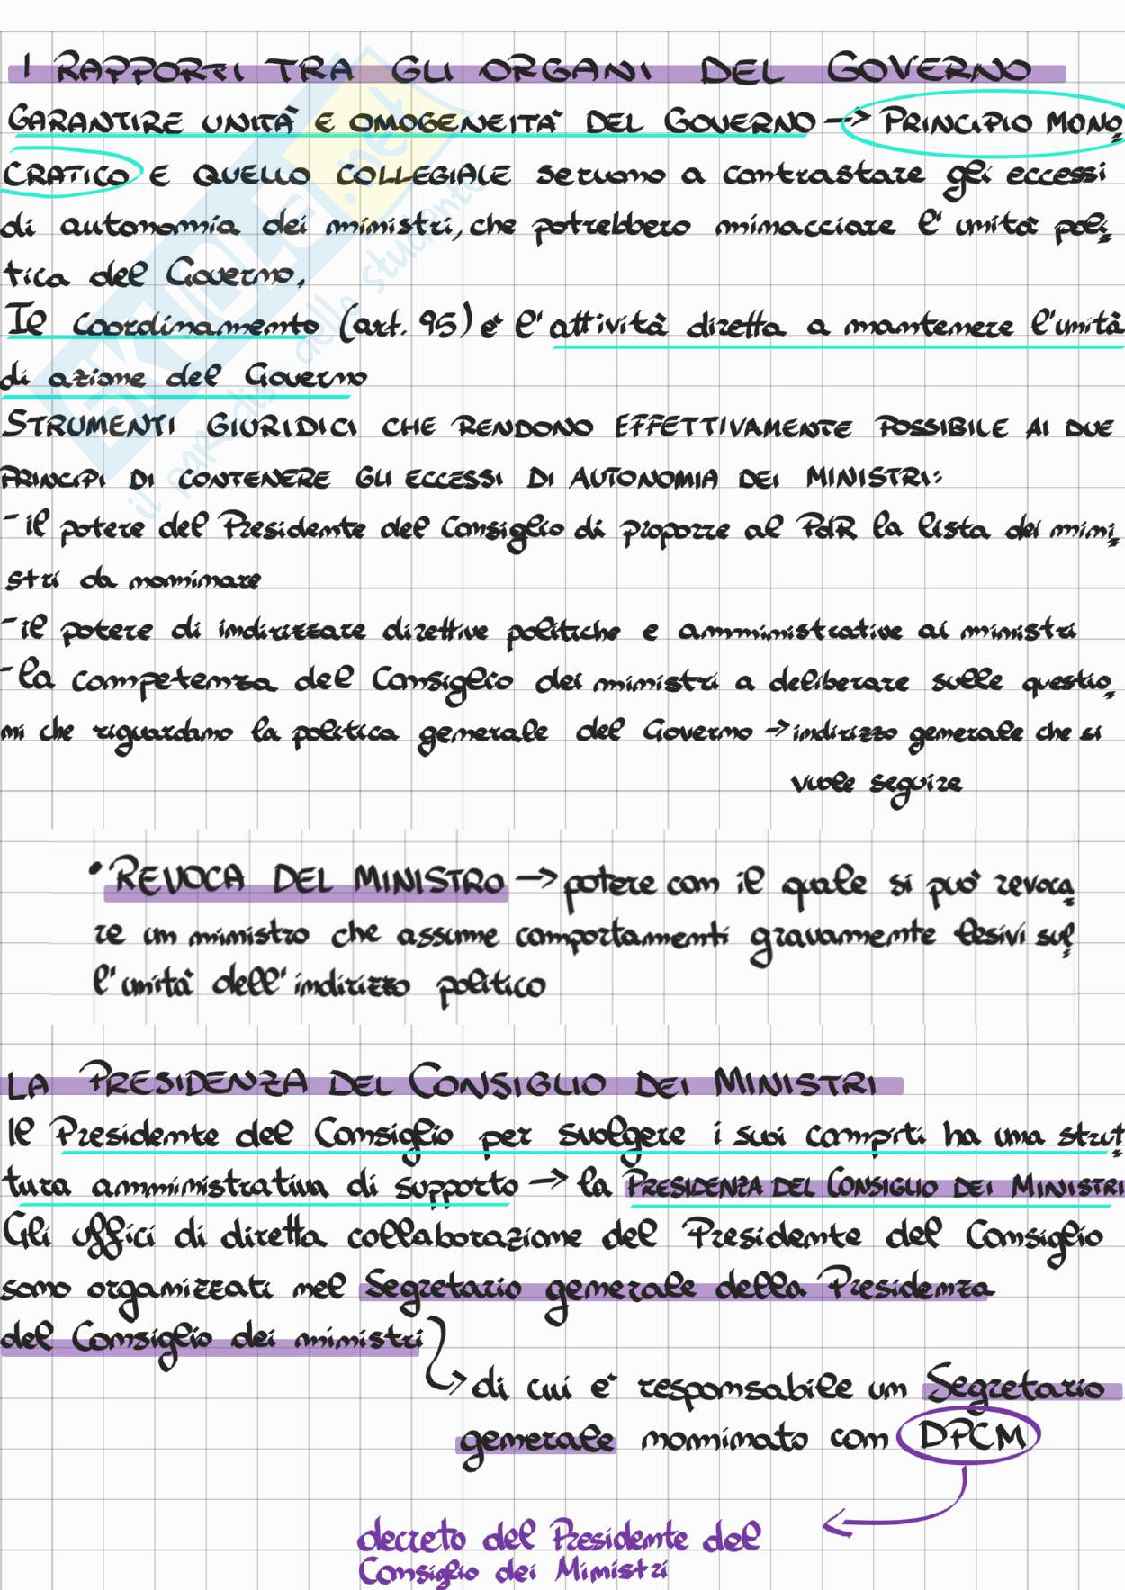 I RAPPORTI TRA GLI ORGANI DEL GOVERNO
GARANTIRE UNITÀ E OMOGENEITÀ DEL GOVERNO → PRINCIPIO MONO
CRATICO E QUELLO COLLEGIALE servono a contrastare gli eccessi
di autonomia dei ministri, che potrebbero minacciare l'unità poli
tica del Governo.
Il Coordinamento (art. 95) è l'attività diretta a mantenere l'unità
di azione del Governo
STRUMENTI GIURIDICI CHE RENDONO EFFETTIVAMENTE POSSIBILE AI DUE
PRINCIPI DI CONTENERE GLI ECCESSI DI AUTONOMIA DEI MINISTRI:
- il potere del Presidente del Consiglio di proporre al PdR la lista dei mini
stri da nominare
- il potere di indirizzare direttive politiche e amministrative ai ministri
- la competenza del Consiglio dei ministri a deliberare sulle questio
ni che riguardano la politica generale del Governo → indirizzo generale che si
vuole seguire
• REVOCA DEL MINISTRO → potere con il quale si può revoca
re un ministro che assume comportamenti gravamente lesivi sul
l'unità dell'indirizzo politico
LA PRESIDENZA DEL CONSIGLIO DEI MINISTRI
Il Presidente del Consiglio per svolgere i suoi compiti ha una strut
tura amministrativa di supporto → la PRESIDENZA DEL CONSIGLIO DEI MINISTRI
Gli uffici di diretta collaborazione del Presidente del Consiglio
sono organizzati nel Segretario generale della Presidenza
del Consiglio dei ministri
→ di cui è responsabile un Segretario
generale nominato con DPCM
decreto del Presidente del
Consiglio dei Ministri